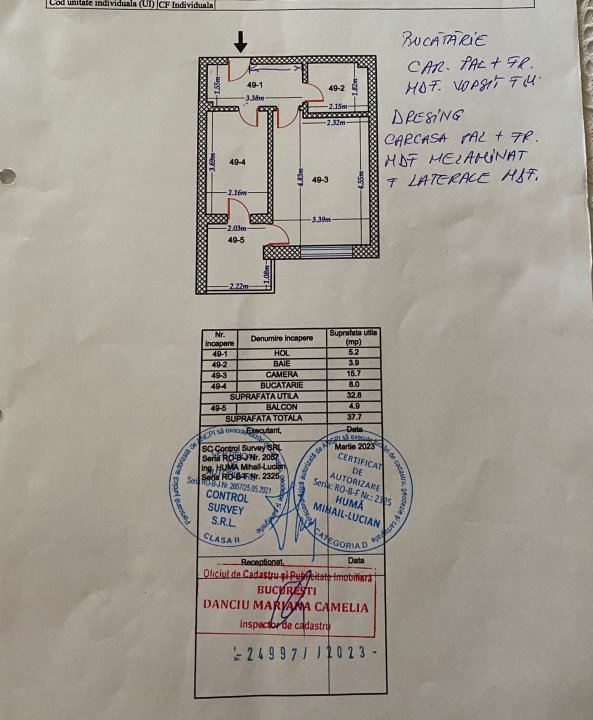 Cod unitate individuala (UI) CF Individuala
BUCĂTĂRIE
CAR. PAL + FR.
MDF. VOPSIT T.H.
DRESING
CARCASA PAL + FR.
MDF MELAMINAT
+ LATERALE MDF.
49-1
1.55m
3.38m
49-2
1.82m
2.15m
2.32m
49-4
3.69m
2.16m
49-3
4.83m
4.55m
3.39m
2.03m
49-5
1.08m
2.22m
Nr. incapere Denumire incapere Suprafata utila (mp)
49-1 HOL 5.2
49-2 BAIE 3.9
49-3 CAMERA 15.7
49-4 BUCATARIE 8.0
SUPRAFATA UTILA 32.8
49-5 BALCON 4.9
SUPRAFATA TOTALA 37.7
Executant, Data
SC Control Survey SRL Martie 2023
Seria RO-B-J Nr. 2057
Ing. HUMĂ Mihail-Lucian
Seria RO-B-F Nr. 2325
Persoană juridică autorizată de ANCPI să execute
Seria RO-B-J Nr. 2057/25.05.2021
CONTROL
SURVEY
S.R.L.
CLASA II
CERTIFICAT
DE
AUTORIZARE
Seria: RO-B-F Nr.: 2325
HUMĂ
MIHAIL-LUCIAN
CATEGORIA D
Receptionat, Data
Oficiul de Cadastru și Publicitate Imobiliară
BUCUREȘTI
DANCIU MARIANA CAMELIA
Inspector de cadastru
24997//2023-